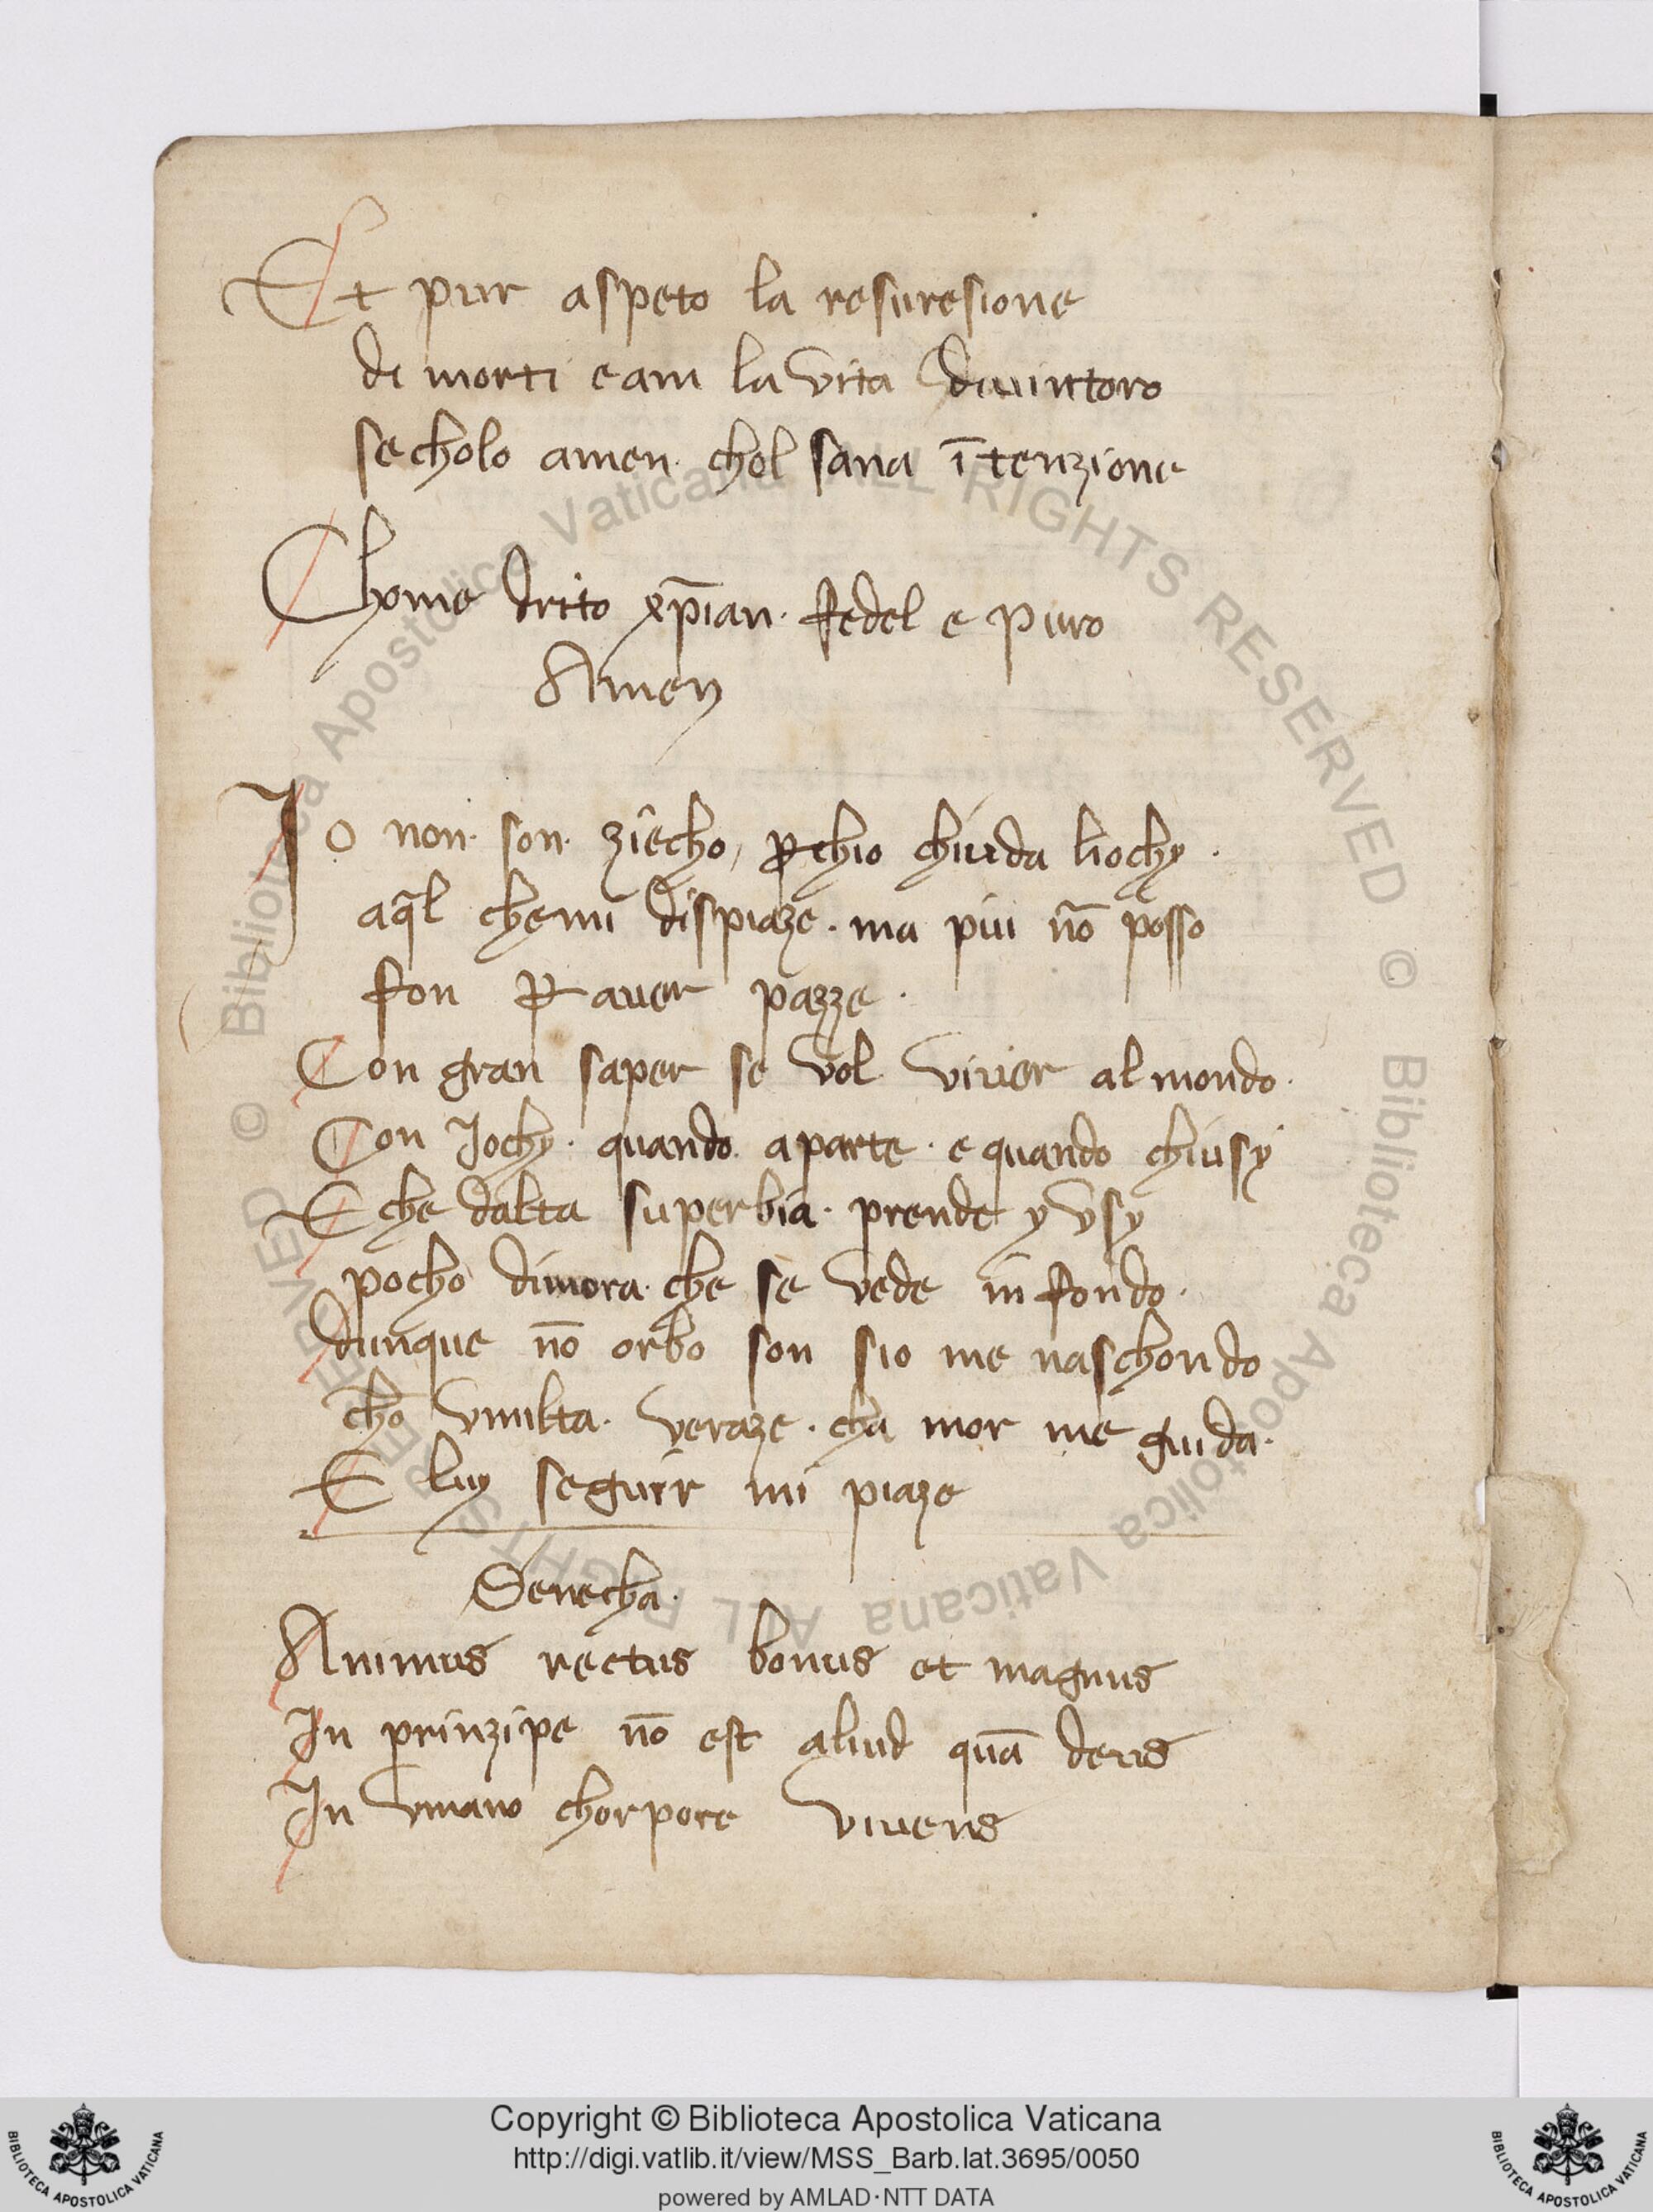 Et pur aspeto la resuresione
di morti e am la vita
secholo amen. chol sana ītenzione
Chome drito xp̄ian. fedel e puro
Amen
Jo non. son. ziecho, ꝑchio chiuda liochy.
aq̄l che mi dispiaze. ma piu nō posso
fon ꝑ auer pazze.
Con gran saper se vol viuer al mondo.
Con Jochy. quando aparte. e quando chiusy
E che dalta superbia. prende y vsy
pocho dimora. che se vede in fondo.
dunque nō orbo son sio me naschondo
chō vmilta. veraze. cha mor me guida.
E luy seguir mi piaze
Senecha.
Animus rectus bonus et magnus
In prinzipe nō est aliud quā deus
In vmano chorpore viuens
© Biblioteca Apostolica Vaticana ALL RIGHTS RESERVED © Biblioteca Apostolica Vaticana ALL RIGHTS RESERVED
Copyright © Biblioteca Apostolica Vaticana
http://digi.vatlib.it/view/MSS_Barb.lat.3695/0050
powered by AMLAD·NTT DATA
BIBLIOTECA APOSTOLICA VATICANA
BIBLIOTECA APOSTOLICA VATICANA